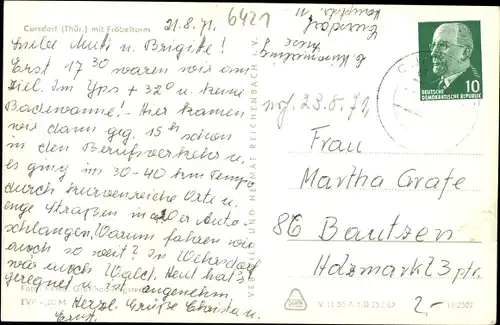 Cursdorf (Thür.) mit Fröbelturm
21.8.71.
6421
Liebe Mutti u. Brigitte!
Erst 17³⁰ waren wir am
Ziel. Im Yps + 32° u. keine
Badewanne! - Hier kamen
wir dann geg. 15ʰ schon
in den Berufsverkehr u.
es ging im 30-40 km Tempo
durch kurvenreiche Orte u.
enge Straßen in 20er Auto-
schlangen. Warum fahren wir
auch so weit? In
wär auch Wald. Heut hat's
geregnet u. ist angenehm
Herzl. Grüße Christa u.
Ernst.
EVP
VERLAG BILD UND HEIMAT REICHENBACH I. V.
Cursdorf
DEUTSCHE
DEMOKRATISCHE REPUBLIK
10
23.8.71
Frau
Martha Grafe
86 Bautzen
Holzmarkt 3 ptr.
2,-